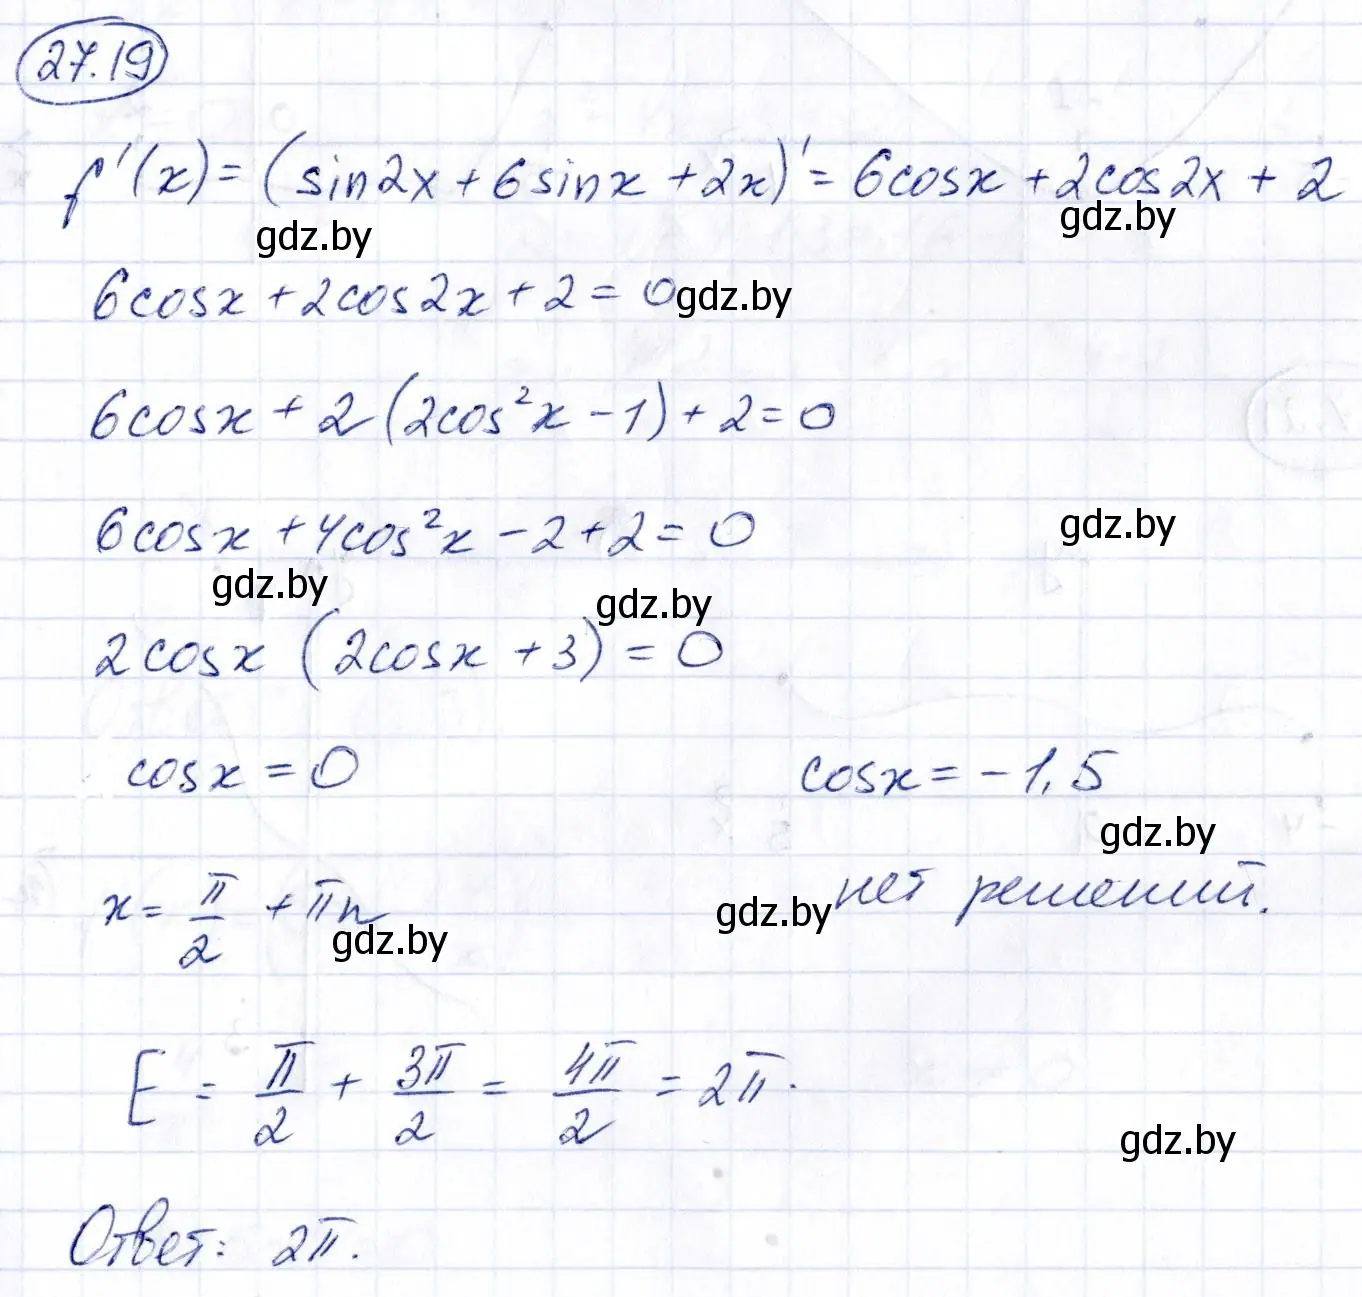 27.19
f'(x) = (sin2x + 6sinx + 2x)' = 6cosx + 2cos2x + 2
gdz.by
gdz.by
6cosx + 2cos2x + 2 = 0
gdz.by
6cosx + 2(2cos²x - 1) + 2 = 0
6cosx + 4cos²x - 2 + 2 = 0
gdz.by
gdz.by
gdz.by
2cosx (2cosx + 3) = 0
cosx = 0 cosx = -1,5
gdz.by
x = π/2 + πn нет решений.
gdz.by
gdz.by
E = π/2 + 3π/2 = 4π/2 = 2π.
gdz.by
Ответ: 2π.